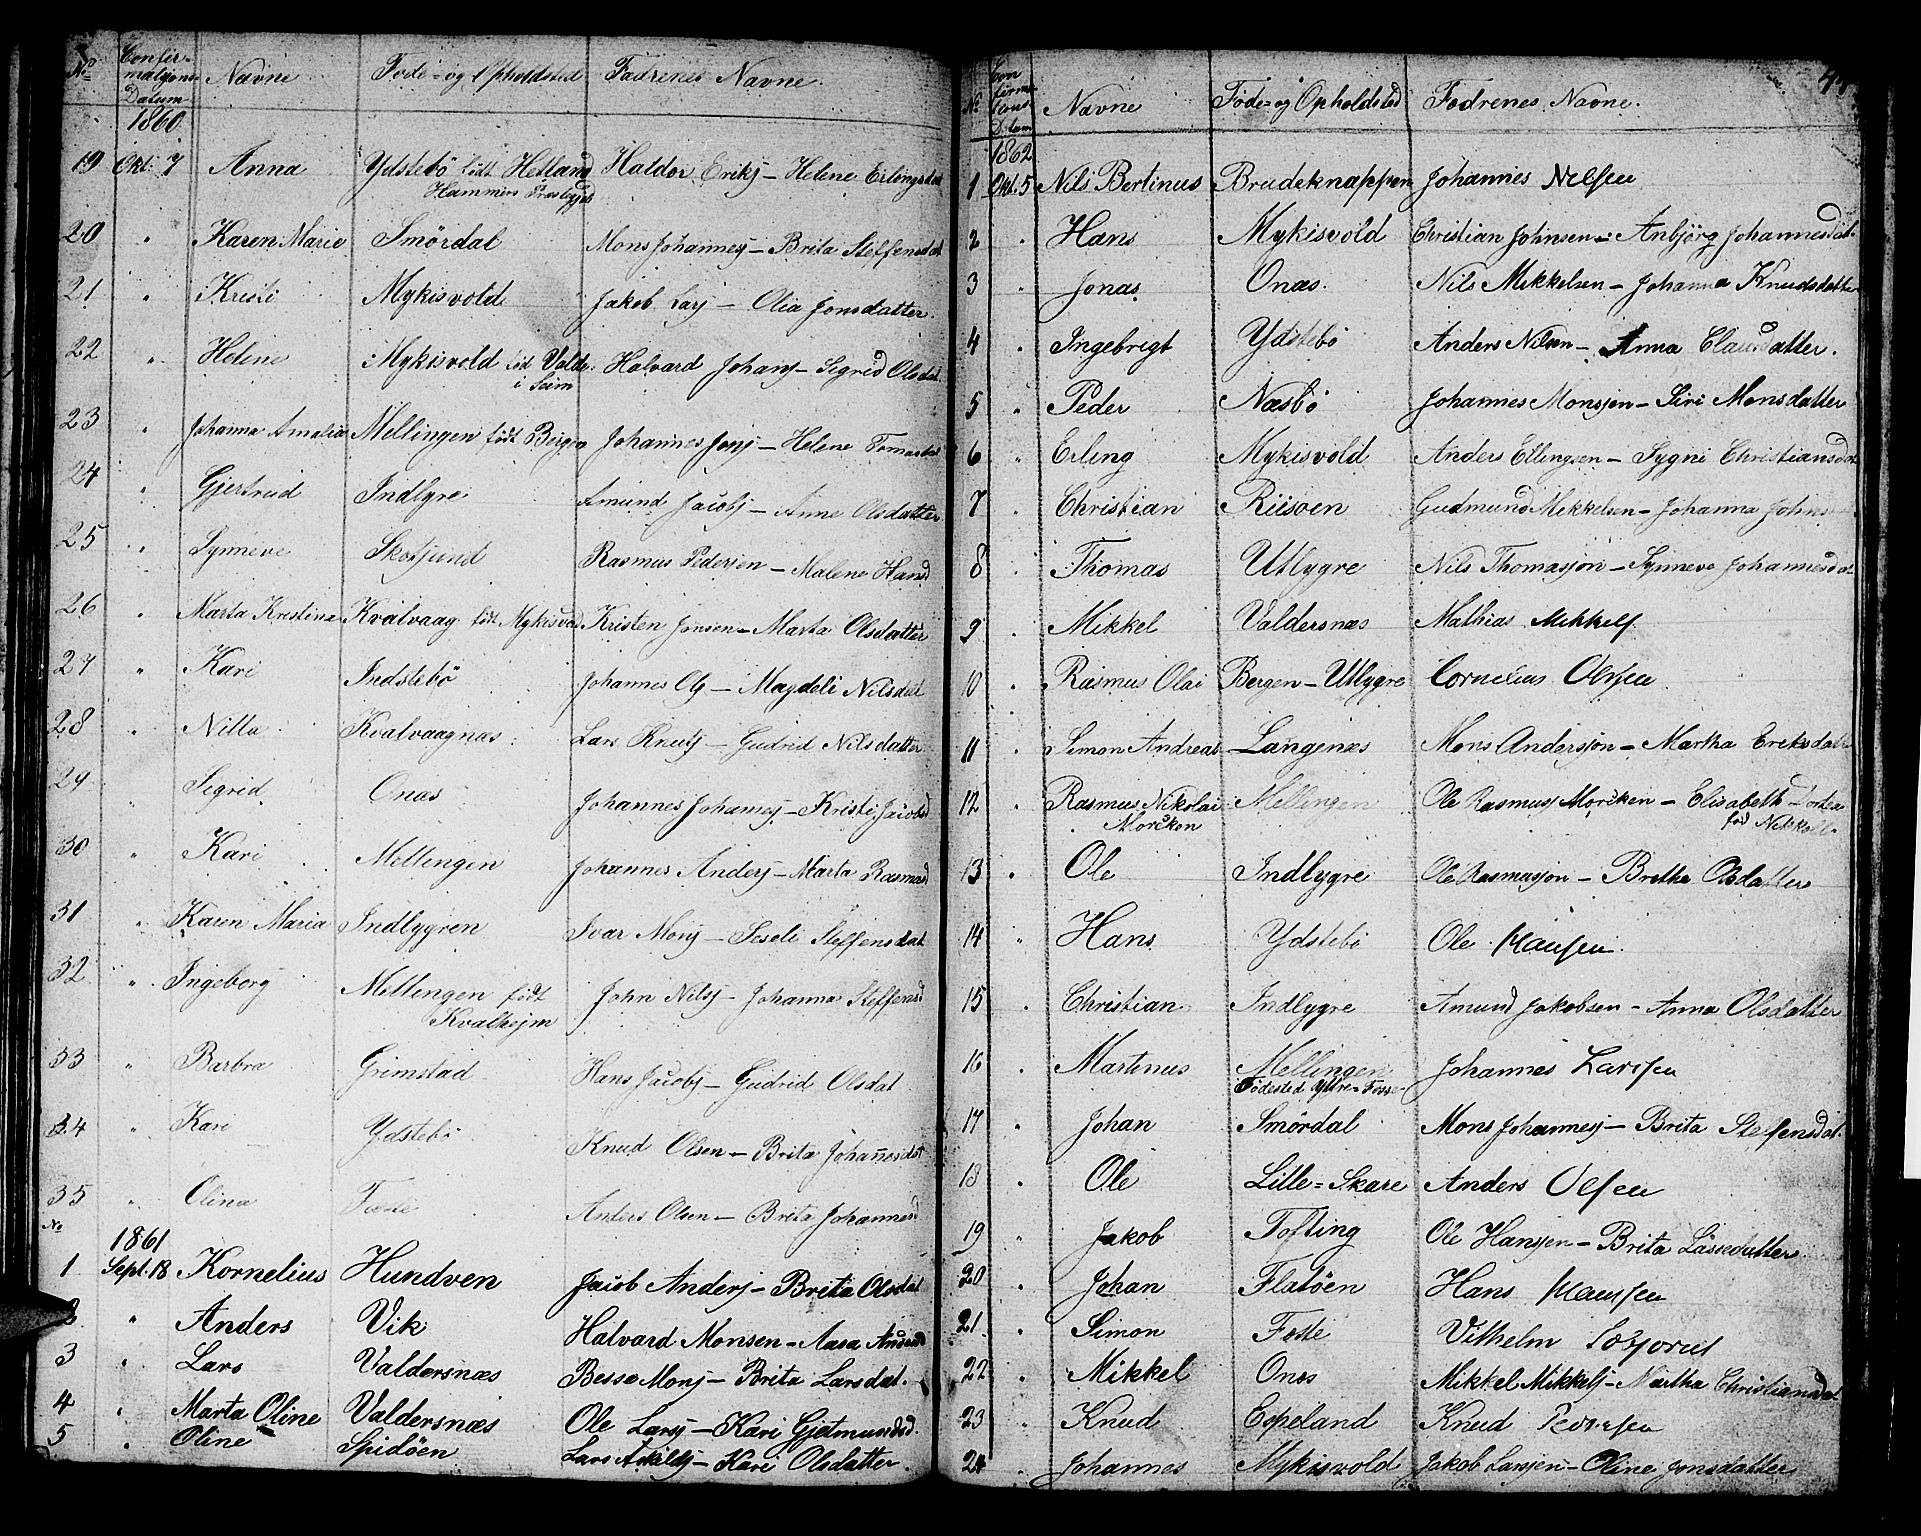 No Confir- Navne Föde- og Opholdsted Fodrenes Navne.
mations
Datum
1860
19 Okt. 7 Anna Ydstebö födt Hetland Haldor Eriks - Helene Erlingsdat
Hammers Præstgjd
20 " Karen Marie Smördal Mons Johannes - Brita Steffensdat
21 " Kristi Mykisvold Jakob Lars - Olia Jonsdatter.
22 " Heline Mykisvold föd Valde Halvard Johans - Sigrid Olsdat
i Seim
23 " Johanna Amalia Mellingen födt Bergen Johannes Jons - Helene Tomasdat
24 " Gjertrud Indlygre Amund Jacobs - Anne Olsdatter
25 " Synneve Skotjund Rasmus Pedersen - Malene Hansd
26 " Marta Kristina Kvalvaag födt Mykisvold Kristen Jonsen - Marta Olsdatter
27 " Kari Indstebö Johannes Ols - Magdeli Nilsdat
28 " Nilla Kvalvaagnæs Lars Knuts - Gudrid Nilsdatter
29 " Sigrid Onæs Johannes Johannes - Kristi Jacobsd
30 " Kari Mellingen Johannes Anders - Marta Rasmusd
31 " Karen Maria Indlygren Ivar Mons - Seseli Steffensdat
32 " Ingeborg Mellingen födt John Nils - Johanna Steffensd
Kvalhejm
33 " Barbra Grimstad Hans Jacobs - Gudrid Olsdat
34 " Kari Ydstebö Knud Olsen - Brita Johannesdat
35 " Olina Toste Anders Olsen - Brita Johannesd
No 1861
1 Sept. 18 Kornelius Hundven Jacob Anders - Brita Olsdat
2 " Anders Vik Halvard Monsen - Aasa Andersd
3 " Lars Valdersnæs Besse Mons - Brita Larsdat.
4 " Marta Oline Valdersnæs Ole Lars - Kari Gjetmundsd.
5 " Oline Spidöen Lars Askilds - Kari Olsdatter.
44
No Con Navne Föde- og Opholdsted Fodrenes Navne.
firma
tions
Datum
1862
1 Okt. 5 Nils Bertinus Brudeknappen Johannes Nilsen
2 " Hans Mykisvold Christian Johnsen - Anbjörg Johannesdat.
3 " Jonas Onæs. Nils Mikkelsen - Johanna Knudsdatter
4 " Ingebrigt Ydstebö Anders Nilsen - Anna Clausdatter.
5 " Peder Næsbö Johannes Monssen - Siri Monsdatter
6 " Erling Mykisvold Anders Ellingsen - Sygni Christiansdat
7 " Christian Riisöen Gudmund Mikkelsen - Johanna Johns
8 " Thomas Utlygre Nils Thomassön - Synneve Johannesdat
9 " Mikkel Valdersnæs Mathias Mikkels
10 " Rasmus Olai Bergen - Utlygre Cornelius Olsen
11 " Simon Andreas Langenæs Mons Anderssön - Martha Eriksdatt
12 " Rasmus Nikolai Mellingen Ole Rasmuss Morcken - Elisabeth Dortea
Morcken föd
13 " Ole Indlygre Ole Rasmussön - Brethe Olsdatter
14 " Hans Ydstebö Ole Hansen
15 " Christian Indlygre Amund Jakobsen - Anna Olsdatter
16 " Martinus Mellingen Johannes Larssen
Födested Ytre-Fosse
17 " Johan Smördal Mons Johannes - Brita Steffensdat.
18 " Ole Lille-Skare Anders Olsen
19 " Jakob Tofting Ole Hansen - Brita Lassedatter
20 " Johan Flatöen Hans Hanssen
21 " Simon Foste Vilhelm
22 " Mikkel Onæs Mikkel Mikkels - Martha Christiansdat
23 " Knud Espeland Knud Pedersen
24 " Johannes Mykisvold Jakob Larsen - Oline Jonsdatter